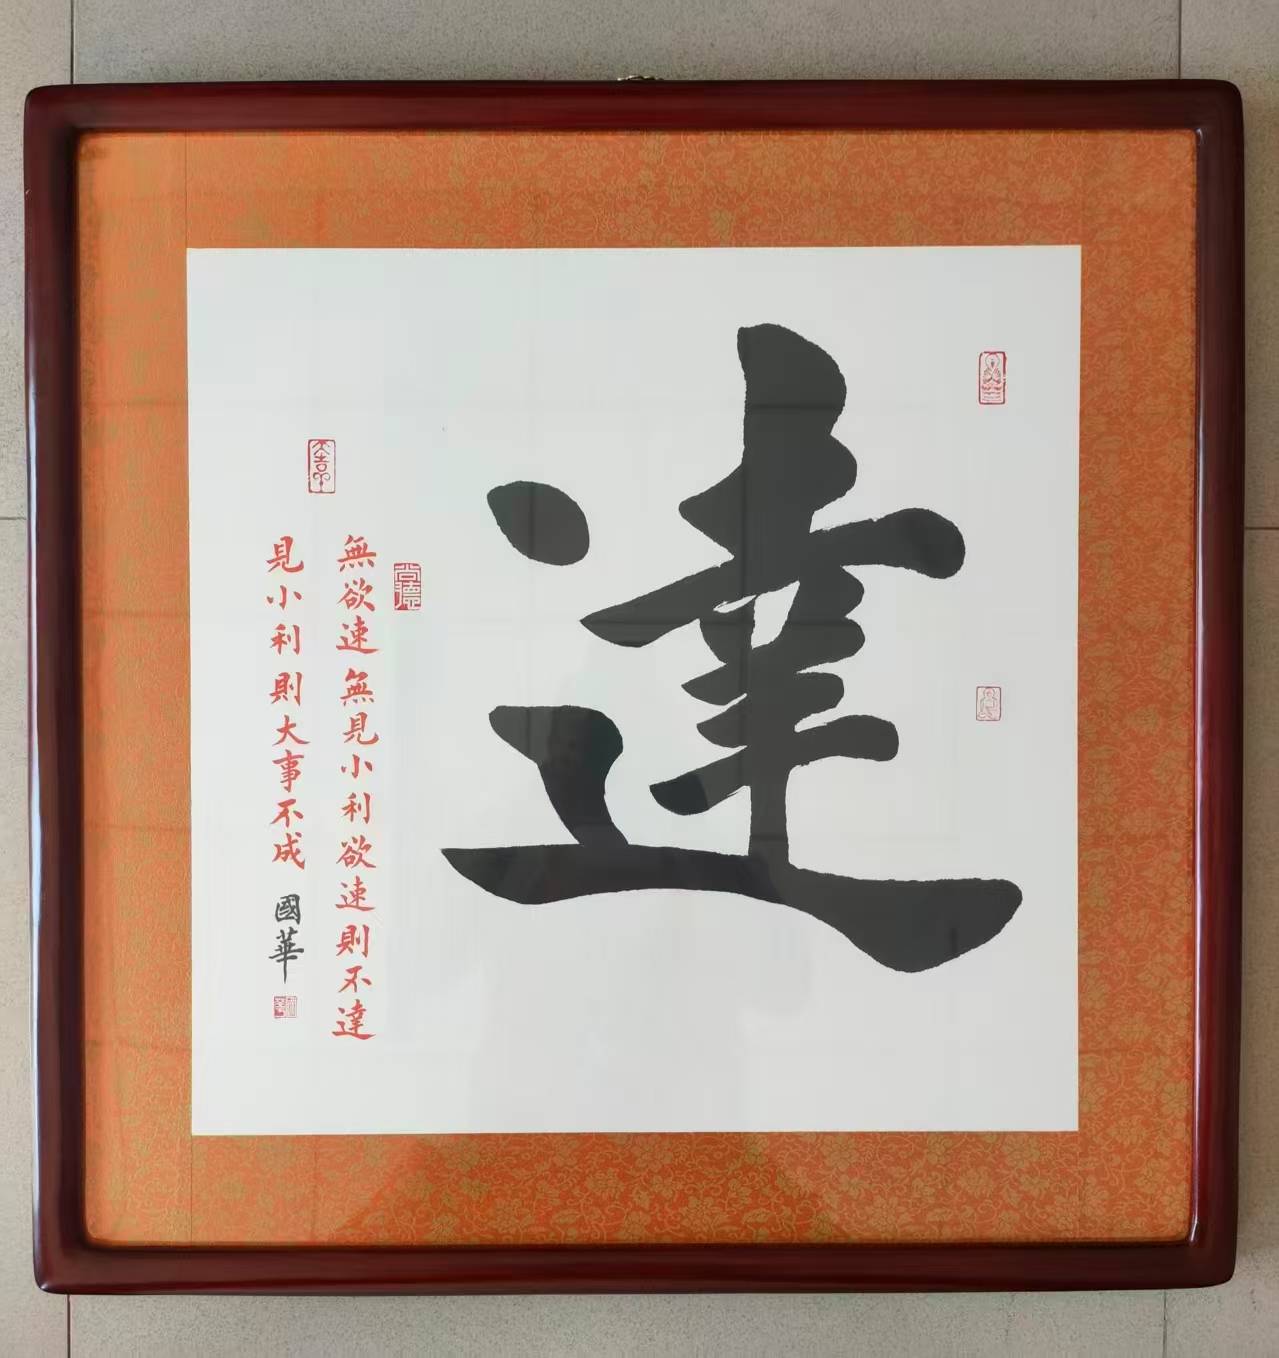 達
尚德
無欲速無見小利欲速則不達
見小利則大事不成
國華